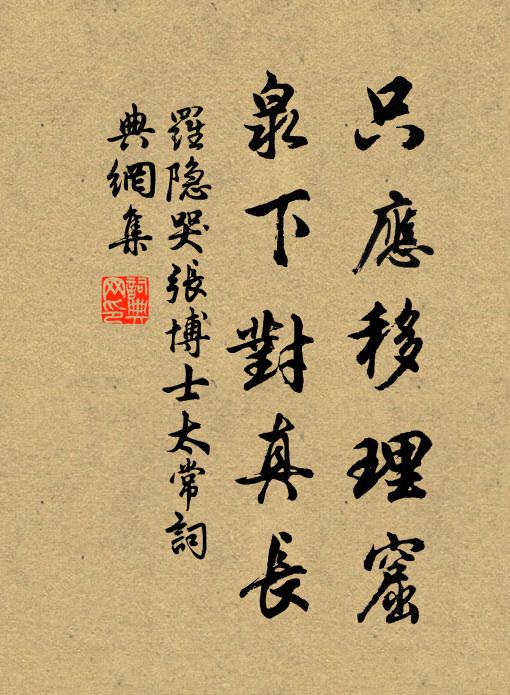 只應移理窟
泉下對真長
羅隐哭張博士太常詞
典網集
詞典
网印